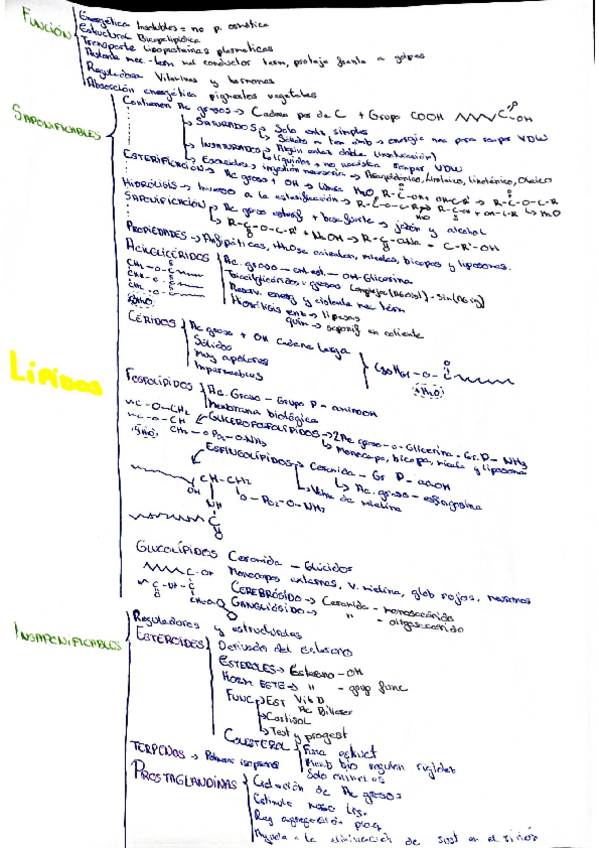 FUNCIÓN
Energética Insolubles = no p. osmótica
Estructural Bicapa lipídica
Transporte Lipoproteínas plasmáticas
Aislante mec.-term mal conductor term, protege frente a golpes
Reguladora Vitaminas y hormonas
Absorción energética pigmentos vegetales
SAPONIFICABLES
Contienen Ac grasos → Cadena par de C + Grupo COOH
C-OH
SATURADOS → Solo enl. simples
Sólido a tem amb → energía para romper VDW
INSATURADOS → Algún enlace doble (insaturación)
Líquidos → no necesita romper VDW
Esenciales → ingestión necesaria → Linoleico, Linolénico, Oleico
ESTERIFICACIÓN → Ac graso + OH → libera H2O
HIDRÓLISIS → Inverso a la esterificación →
SAPONIFICACIÓN → Ac graso esterif + base fuerte → jabón y alcohol
R-C-O-C-R' + NaOH → R-C-ONa + C-R'-OH
PROPIEDADES → Anfipáticas, H2O se orientan, micelas, bicapas y liposomas.
ACILGLICÉRIDOS
Ac. graso - enl. est. - OH-Glicerina
Triacilglicéridos = grasas
Reserv energ y aislante mec térm
Hidrólisis enz → lipasas
quím → saponif en caliente
CÉRIDOS
Ac graso + OH Cadena larga
Sólidos
Muy apolares
Impermeables
LÍPIDOS
FOSFOLÍPIDOS
Ac. Graso - Grupo P - aminoOH
Membrana biológica
GLICEROFOSFOLÍPIDOS → 2 Ac graso - o - Glicerina - Gr. P - NH3
Monocapa, bicapa, micela y liposoma
ESFINGOLÍPIDOS → Ceramida - Gr P - aaOH
Ac. graso - esfingosina
Vaina de mielina
CH-CH2
OH
NH
O-PO2-O-NH3
GLUCOLÍPIDOS Ceramida - Glúcidos
Monocapas externas, v. mielina, glob rojos, neuronas
CEREBRÓSIDO → Ceramida - monosacárido
GANGLIÓSIDO → " - oligosacárido
INSAPONIFICABLES
Reguladores y estructurales
ESTEROIDES
Derivado del esterano
ESTEROLES → Esterano - OH
HORM ESTE → " - grup func
FUNC → EST Vit D
Ac Biliares
Cortisol
Test y progest
COLESTEROL
Memb bio regulan
Solo animales
TERPENOS → Polímeros isopreno
PROSTAGLANDINAS
Ciclación de Ac grasos
Estimula musc lis.
Reg agregación plaq
Ayuda a la eliminación de sust en el riñón